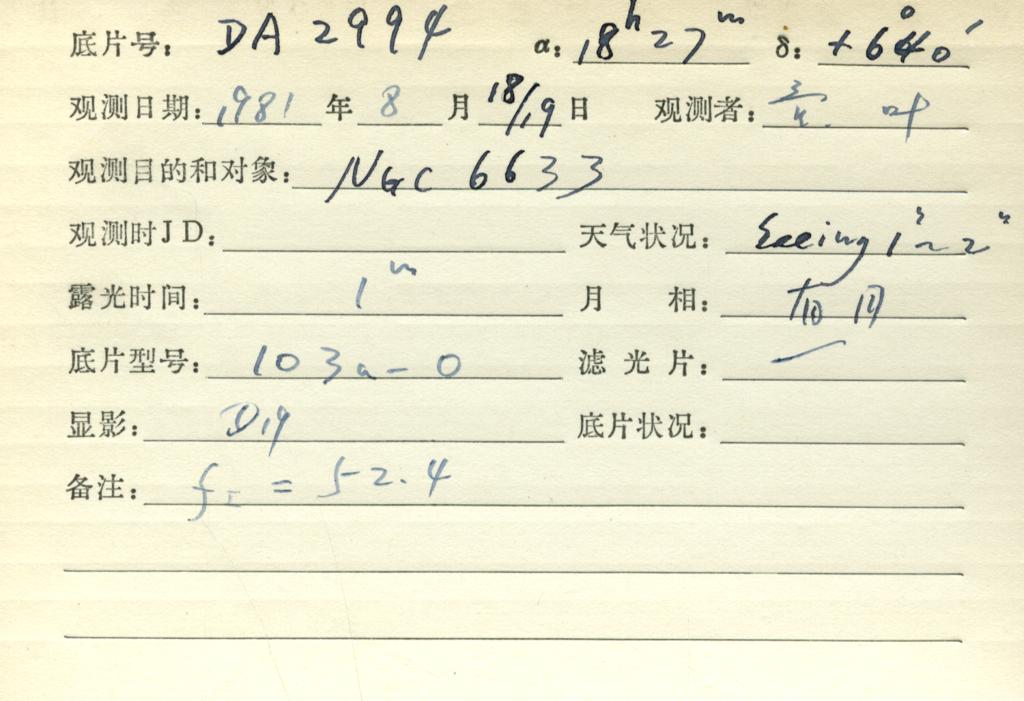 底片号: DA 2994 α: 18h 27m δ: +6°40′
观测日期: 1981 年 8 月 18/19 日 观测者: 叶
观测目的和对象: NGC 6633
观测时JD: 天气状况: Seeing 1"~2"
露光时间: 1m 月 相: 有月
底片型号: 103a-O 滤光片: —
显影: D19 底片状况:
备注: fI = 52.4